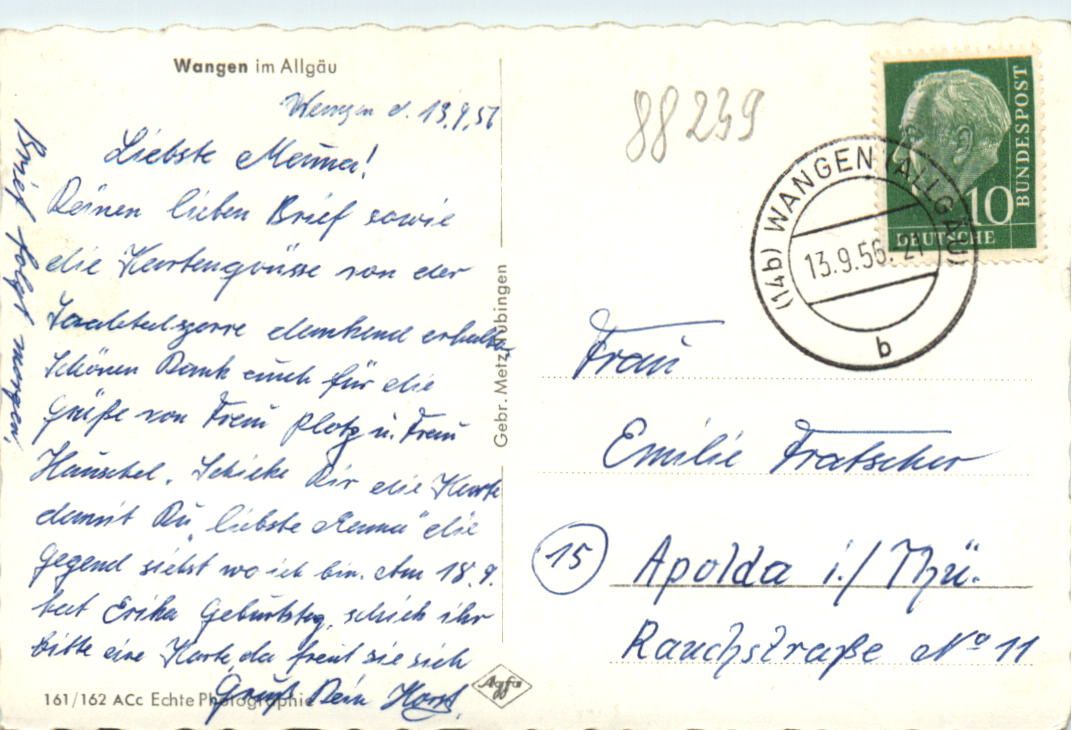 Wangen im Allgäu
Wangen d. 13.9.56
Liebste Mama!
Deinen lieben Brief sowie
die Kartengrüsse von der
dankend erhalten
Schönen Dank auch für die
Grüße von Frau Plotz u. Frau
Hauschel. Schicke Dir die Karte
damit Du "liebste Mama" die
Gegend siehst wo ich bin. Am 18.9.
hat Erika Geburtstag, schick ihr
bitte eine Karte, da freut sie sich
Gruß Dein Horst.
Brief folgt morgen!
161/162 ACc Echte Photographie
Gebr. Metz, Tübingen
Agfa
88239
(14b) WANGEN (ALLGÄU)
13.9.56.-21
b
10
DEUTSCHE
BUNDESPOST
Frau
Emilie Fratscher
15 Apolda i./Thü.
Rauchstraße No 11